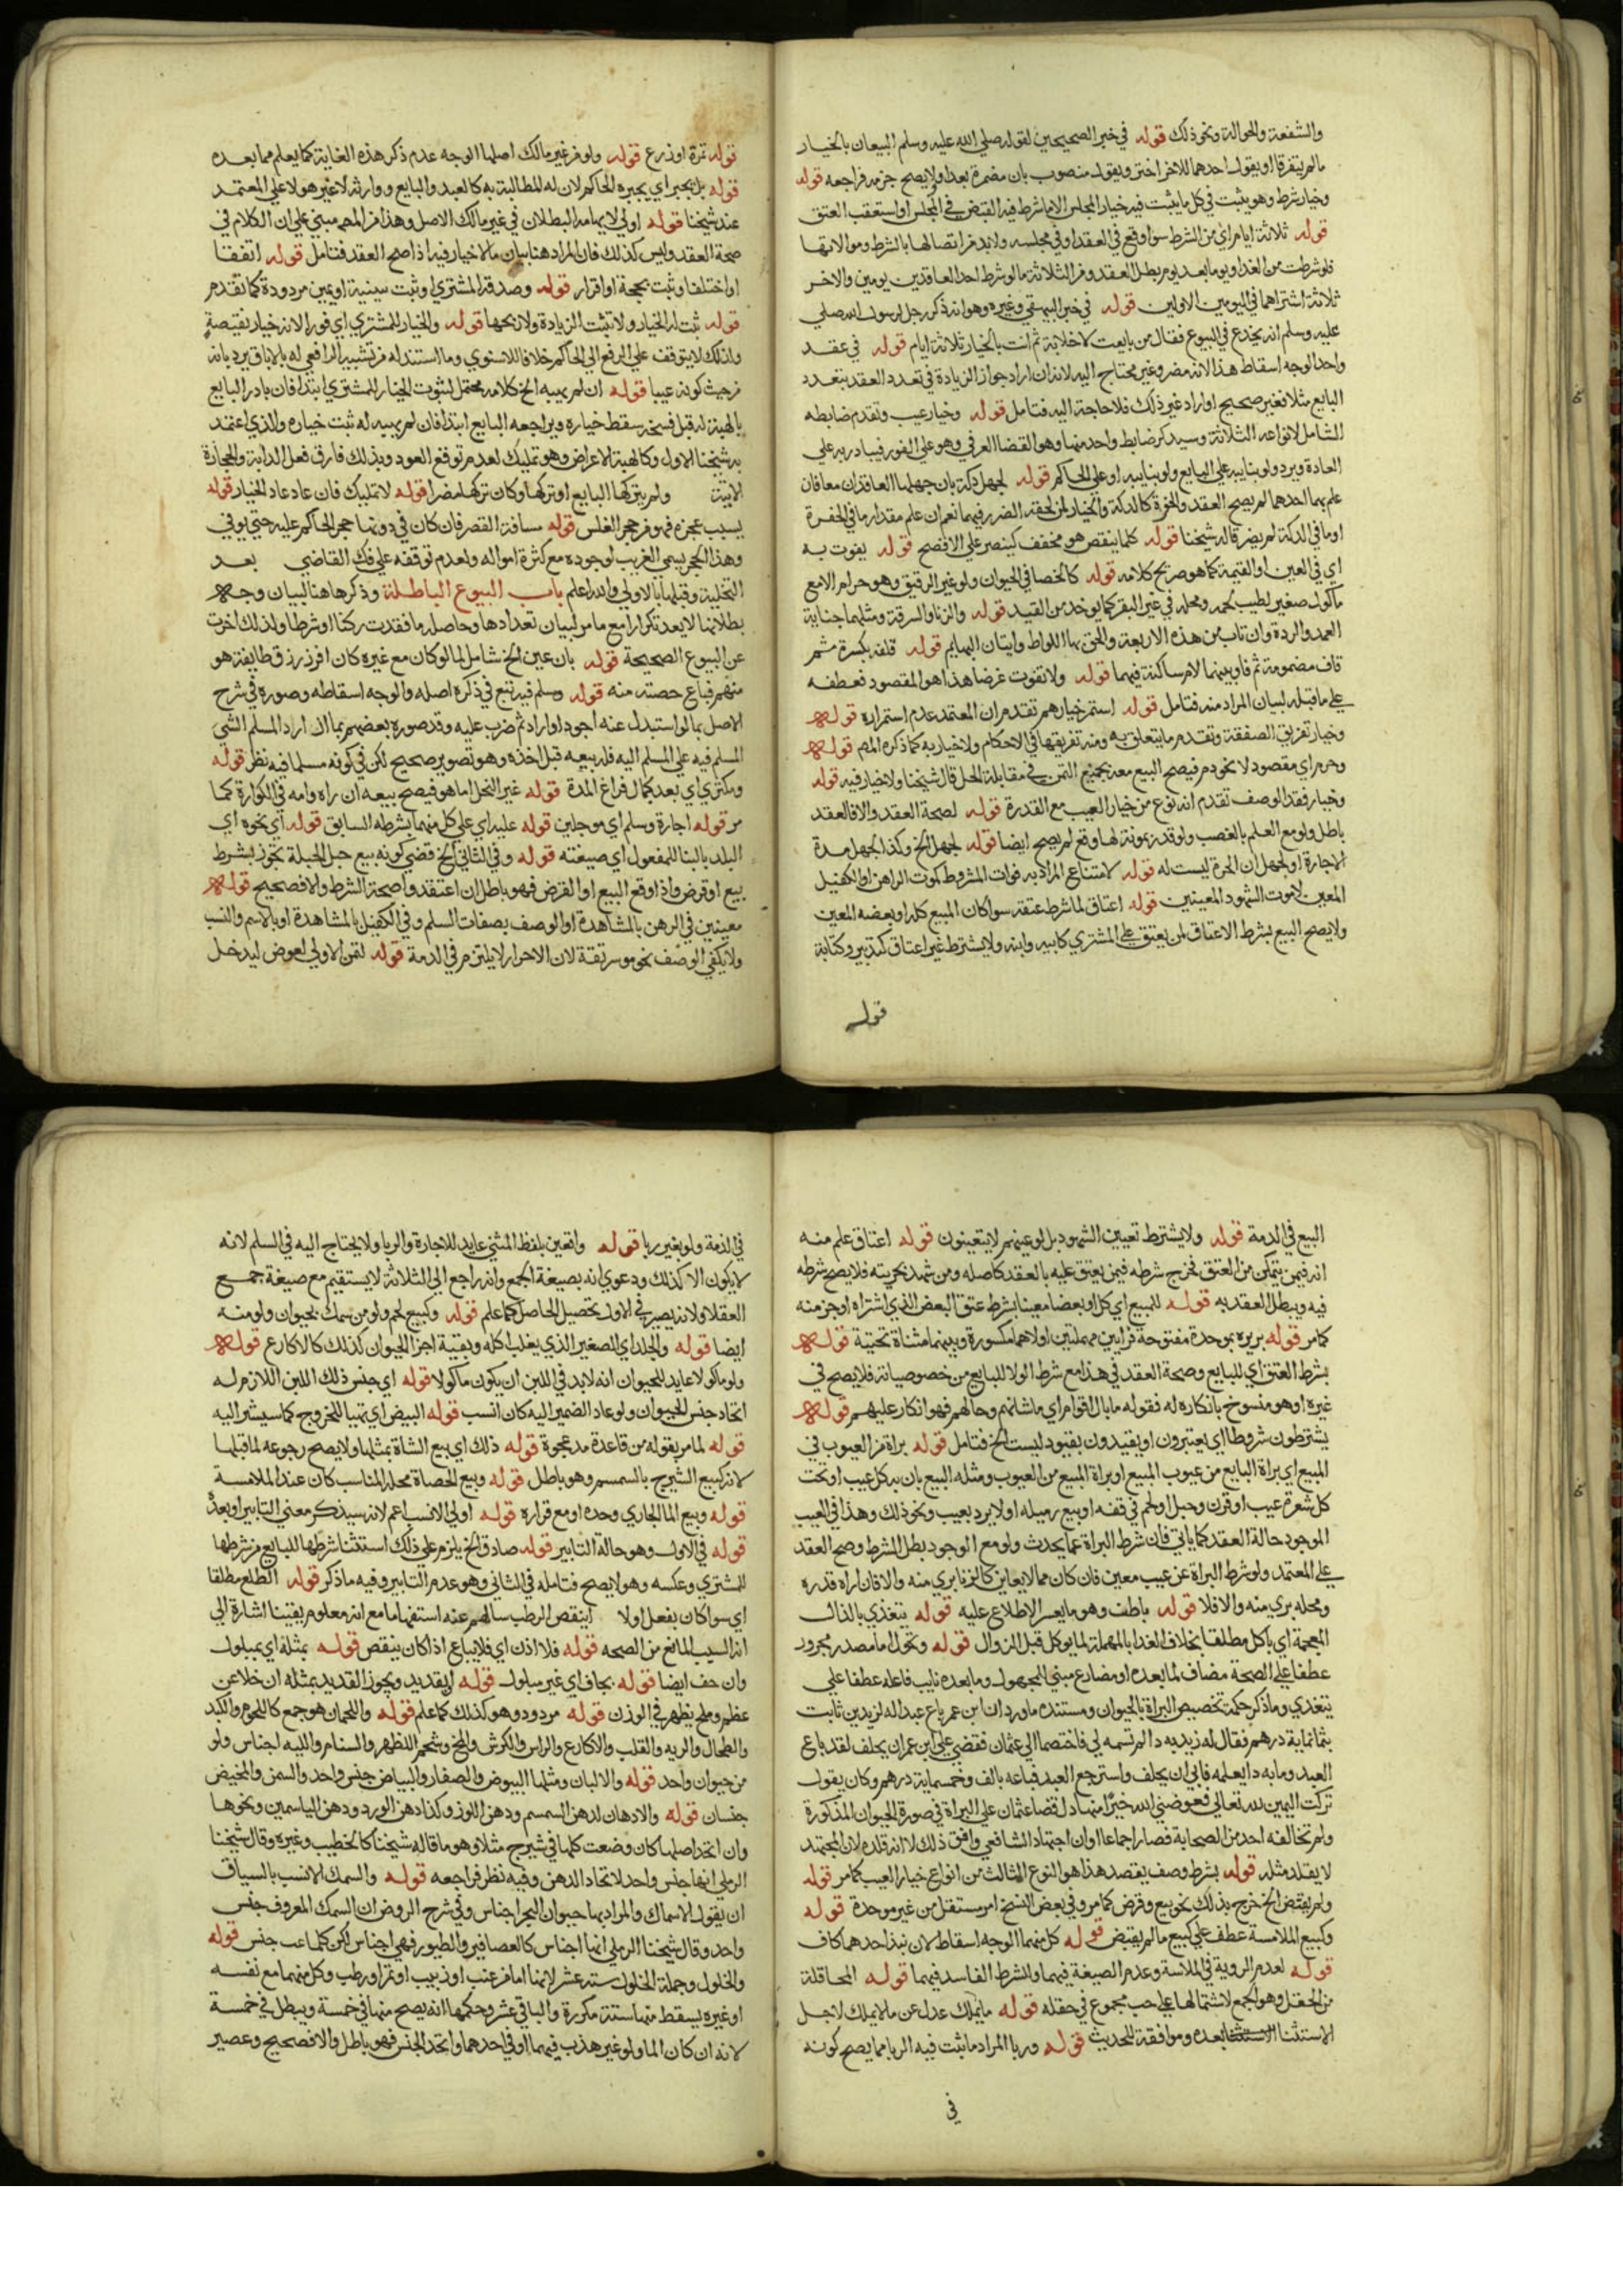 والشفعة والحوالة ونحو ذلك قوله في خبر الصحيحين لقوله صلي الله عليه وسلم البيعان بالخيار
مالم يتفرقا او يقول احدهما للاخر اختر ويقول منصوب بان مضمرة بعد او ولا يصح جزمه فراجعه قوله
وخيار شرط وهو يثبت في كل ما يثبت فيه خيار المجلس الا ما شرط فيه القبض في المجلس او استعقب العتق
قوله ثلاثة ايام اي من الشرط سوا وقع في العقد او في مجلسه ولابد من اتصالها بالشرط وموالاتها
فلو شرطت من الغد او يوما بعد يوم بطل العقد ومن الثلاثة مالو شرط احد العاقدين يومين والاخر
ثلاثة اشتراهما في اليومين الاولين قوله في خبر البيهقي وغيره وهو انه ذكر رجل لرسول الله صلي
عليه وسلم انه يخدع في البيوع فقال من بايعت لا خلابة ثم انت بالخيار ثلاثة ايام قوله في عقد
واحد الوجه اسقاط هذا لانه مضر وغير محتاج اليه لانه ان اراد جواز الزيادة في تعدد العقد بتعدد
البايع مثلا فغير صحيح او اراد غير ذلك فلا حاجة اليه فتامل قوله وخيار عيب وتقدم ضابطه
الشامل لانواعه الثلاثة وسيذكر ضابط واحد منها وهو القضا العرفي وهو علي الفور فيبادر به علي
العادة ويرد ولو بنايبه علي البايع ولو بنايبه او علي الحاكم قوله لجهل دكة بان جهلها العاقدان معا فان
علم بها احدهما لم يصح العقد والحفرة كالدكة والخيار لمن لحقه الضرر فيهما نعم ان علم مقدار ما في الحفرة
او ما في الدكة لم يضر قاله شيخنا قوله كلما ينقص هو مخفف كينصر علي الافصح قوله يفوت به
اي في العين او القيمة كما هو صريح كلامه قوله كالخصا في الحيوان ولو غير الرقيق وهو حرام الا مع
ماكول صغير لطيب لحمه ومحله في غير البقر كما يوخذ من القيد قوله والزنا والسرقة ومثلهما جناية
العمد والردة وان تاب من هذه الاربعة والحق بها اللواط واتيان البهايم قوله قلفه بكسرة مشم
قاف مضمومة ثم فا وبينهما لام ساكنة فيهما قوله ولا تفوت غرضا هذا هو المقصود فعطفه
علي ما قبله لبيان المراد منه فتامل قوله استمر خيارهم تقدم ان المعتمد عدم استمراره قوله
وخيار تفريق الصفقة وتقدم ما يتعلق به ومنه تفريقها في الاحكام ولا خيار به كما ذكره المص قوله
وحرم اي مقصود لا نحو دم فيصح البيع معه بجميع الثمن في مقابلة الحل قال شيخنا ولا خيار فيه قوله
وخيار فقد الوصف تقدم انه نوع من خيار العيب مع القدرة قوله لصحة العقد والا فالعقد
باطل ولو مع العلم بالغصب ولو قدر بمونة لها وقع لم يصح ايضا قوله لجهل الخ وكذا لجهل مدة
الاجارة او لجهل ان الاجرة ليست له قوله لامتناع المراد به فوات المشروط كموت الراهن او الكفيل
المعين لا موت الشهود المعينين قوله اعتاق لما شرط عتقه سوا كان المبيع كله او بعضه المعين
ولا يصح البيع بشرط الاعتاق لمن يعتق علي المشتري كابيه وابنه ولا يشترط غير اعتاق كتدبير وكتابة
قوله
قوله تمرة او زرع قوله ولو من غير مالك اصلها الوجه عدم ذكر هذه الغاية كما يعلم مما بعده
قوله بل يجبر اي يجبره الحاكم لان له المطالبة به كالعبد والبايع ووارثه لا غير هو لا علي المعتمد
عند شيخنا قوله اولي لايهامه البطلان في غير مالك الاصل وهذا من المص مبني علي ان الكلام في
صحة العقد وليس كذلك فان المراد هنا بيان مالا خيار فيه اذا صح العقد فتامل قوله اتفقا
او اختلفا وثبت بحجة او اقرار قوله وصدقه المشتري او ثبت ببينة او يمين مردودة كما تقدم
قوله ثبت له الخيار ولا تثبت الزيادة ولا ربحها قوله والخيار للمشتري اي فورا لانه خيار نقيصة
ولذلك لا يتوقف علي الرفع الي الحاكم خلافا للاسنوي وما استند له من تشبيه الرافعي له بالاباق يرد بانه
من حيث كونه عيبا قوله ان لم يهبه الخ كلامه محتمل لثبوت الخيار للمشتري ابتدا فان بادر البايع
بالهبة له قبل فسخه سقط خياره ويراجعه البايع ابتدا فان لم يهبه له ثبت خياره والذي اعتمد
به شيخنا الاول وكالهبة الاعراض وهو تمليك لعدم توقع العود وبذلك فارق فعل الدابة والحجارة
الاتية ولم يتركها البايع او تركها وكان تركها مضرا قوله لا تمليك فان عاد عاد الخيار قوله
بسبب عجزه فهو من حجر الفلس قوله مسافة القصر فان كان في دونها حجر الحاكم عليه حتي يوفي
وهذا الحجر يسمي الغريب لوجوده مع كثرة امواله ولعدم توقفه علي فك القاضي بعد
التخلية وقبلها بالاولي والله اعلم باب البيوع الباطلة وذكرها هنا لبيان وجه
بطلانها لا يعد تكرارا مع ما مر لبيان تعدادها وحاصله ما فقدت ركنا او شرطا ولذلك اخرت
عن البيوع الصحيحة قوله بان عين الخ شامل لما لو كان مع غيره كان افرز رزق طايفة هو
منهم فباع حصته منه قوله وسلم فيه تبع في ذكره اصله والوجه اسقاطه وصوره في شرح
الاصل بما لو استبدل عنه اجود او اردا ثم ضرب عليه وقد صوره بعضهم بما اذا اراد المسلم الشي
المسلم فيه علي المسلم اليه فله بيعه قبل اخذه وهو تصوير صحيح لكن في كونه مسلما فيه نظر قوله
ومكتري اي بعد كمال فراغ المدة قوله غير النحل اما هو فيصح بيعه ان راه وامه في الكوارة كما
مر قوله اجارة وسلم اي موجلين قوله عليه اي علي كل منهما بشرطه السابق قوله اي نحوه اي
البلد بالبنا للمفعول اي صيغته قوله وفي الثاني الخ قضي كونه بيع حبل الحبلة بتجوز بشرط
بيع او قرض واذا وقع البيع او القرض فهو باطل ان اعتقد واصحة الشرط والا فصحيح قوله
معينين في الرهن بالمشاهدة او الوصف بصفات السلم وفي الكفيل بالمشاهدة او بالاسم والنسب
ولا يكفي الوصف بنحو موسر ثقة لان الاحرار لا يلتزم في الذمة قوله لثمن الاولي لعوض ليدخل
البيع في الذمة قوله ولا يشترط تعيين الشهود بل لو عينهم لا يتعينون قوله اعتاق علم منه
انه فيمن يتمكن من العتق فخرج شرطه فيمن يعتق عليه بالعقد كاصله ومن شهد بحريته فلا يصح شرطه
فيه ويبطل العقد به قوله للمبيع اي كل او بعضا معينا بشرط عتق البعض الذي اشتراه او جز منه
كما مر قوله بريره بموحدة مفتوحة فرايين مهملتين اولاهما مكسورة وبينهما مثناة تحتية قوله
بشرط العتق اي للبايع وصحة العقد في هذا مع شرط الولا للبايع من خصوصياته فلا يصح في
غيره او هو منسوخ بانكاره له فقوله ما بال اقوام اي ما شانهم وحالهم فهو انكار عليهم قوله
يشترطون شروطا اي يعتبرون او يقيدون بقيود ليست الخ فتامل قوله براة من العيوب في
المبيع اي براة البايع من عيوب المبيع او براة المبيع من العيوب ومثله البيع بان به كل عيب او تحت
كل شعرة عيب او قرن وحبل او لحم في قفه او بيع رميله او لا يرد بعيب ونحو ذلك وهذا في العيب
الموجود حالة العقد كما ياتي فان شرط البراة عما يحدث ولو مع الموجود بطل الشرط وصح العقد
علي المعتمد ولو شرط البراة عن عيب معين فان كان مما لا يعاين كالزنا بري منه والا فان اراه قدره
ومحله بري منه والا فلا قوله باطن وهو ما يعسر الاطلاع عليه قوله يتغذي بالذال
المعجمة اي ياكل مطلقا بخلاف الغدا بالمهملة لما يوكل قبل الزوال قوله وتحول اما مصدر مجرور
عطفا علي الصحة مضاف لما بعده او مضارع مبني للمجهول وما بعده نايب فاعله عطفا علي
يتغذي وما ذكر حكمة تخصيص البراة بالحيوان ومستنده ما ورد ان ابن عمر باع عبدا له لزيد بن ثابت
بثمانماية درهم فقال له زيد به دا لم تسمه لي فاختصما الي عثمان فقضي علي ابن عمر ان يحلف لقد باع
العبد وما به دا يعلمه فابي ان يحلف واسترجع العبد فباعه بالف وخمسماية درهم وكان يقول
تركت اليمين لله تعالي فعوضني الله خيرا منها دل قضا عثمان علي البراة في صورة الحيوان المذكورة
ولم تخالفه احد من الصحابة فصار اجماعا وان اجتهاد الشافعي وافق ذلك لا انه قلده لان المجتهد
لا يقلد مثله قوله بشرط وصف يقصد هذا هو النوع الثالث من انواع خيار العيب كما مر قوله
ولم يقتض الخ خرج بذلك نحو بيع وقرض كما مر وفي بعض النسخ امر مستقل من غير موحدة قوله
وكبيع الملامسة عطف علي كبيع مالم يقبض قوله كل منهما الوجه اسقاط لان نبذ احدهما كاف
قوله لعدم الروية في الملامسة وعدم الصيغة فيهما والشرط الفاسد فيهما قوله المحاقلة
من الحقل وهو الجمع لاشتمالها علي حب مجموع في حقله قوله مايملك عدل عن مالا يملك لاجل
الاستثنا بعده وموافقة للحديث قوله وربا المراد ما يثبت فيه الربا مما يصح كونه
في
في الذمة ولو بغير ربا قوله واتعين بلفظ المثني عايد للاجارة والربا ولا يحتاج اليه في السلم لانه
لا يكون الا كذلك ودعوي انه بصيغة الجمع وانه راجع الي الثلاثة لا يستقيم مع صيغة جمع
العقلا ولانه يصير في الاول تحصيل الحاصل كما علم قوله وكبيع لحم ولو من سمك بحيوان ولو منه
ايضا قوله والجلد اي الصغير الذي يغلب اكله وبقية اجزا الحيوان كذلك كالاكارع قوله
ولو ماكولا عايد للحيوان انه لابد في اللبن ان يكون ماكولا قوله اي جنس ذلك اللبن اللازم له
اتحاد جنس الحيوان ولو عاد الضمير اليه كان انسب قوله البيض اي تهيا للخروج كما سيشير اليه
قوله لما مر بقوله من قاعدة مد عجوة قوله ذلك اي بيع الشاة بمثلها ولا يصح رجوعه لما قبلها
لانه كبيع الشيرج بالسمسم وهو باطل قوله وبيع الحصاة محله المناسب كان عند الملامسة
قوله وبيع الما الجاري وحده او مع قراره قوله اولي الانسب اعم لانه سيذكر معني التابير او بعد
قوله في الاول وهو حالة التابير قوله صادق الخ يلزم علي ذلك استثنا شرطها للبايع من شرطها
للمشتري وعكسه وهو لا يصح فتامله في الثاني وهو عدم التابير وفيه ما ذكر قوله الطلع مطلقا
اي سوا كان بفعل او لا اينقص الرطب سالهم عنه استفهاما مع انه معلوم يقينا اشارة الي
انه السبب المانع من الصحه قوله فلا اذن اي فلا يباع اذا كان ينقص قوله بمثله اي بمبلول
وان جف ايضا قوله بجاف اي غير مبلول قوله لابقديد ويجوز القديد بمثله ان خلا عن
عظم وملح يظهر في الوزن قوله مردود وهو كذلك كما علم قوله واللحمان هو جمع كاللحوم والكبد
والطحال والريه والقلب والاكارع والراس والكرش والمخ وشحم الظهر والسنام والليه اجناس ولو
من حيوان واحد قوله والالبان ومثلها البيوض والصفار والبياض جنس واحد والسمن والمخيض
جنسان قوله والادهان لدهن السمسم ودهن اللوز وكذا دهن الورد ودهن الياسمين ونحوها
وان اتحد اصلها كان وضعت كلها في شيرج مثلا وهو ما قاله شيخنا كالخطيب وغيره وقال شيخنا
الرملي انها جنس واحد لاتحاد الدهن وفيه نظر فراجعه قوله والسمك الانسب بالسياق
ان يقول الاسماك والمراد بها حيوان البحر اجناس وفي شرح الروض ان السمك المعروف جنس
واحد وقال شيخنا الرملي انها اجناس كالعصافير والطيور فهي اجناس لكن كلما عب جنس قوله
والخلول وجملة الخلول ستة عشر لانها اما من عنب او زبيب او تمر او رطب وكل منهما مع نفسه
او غيره يسقط منها ستة مكررة والباقي عشر وحكمها انه يصح منها في خمسة ويبطل في خمسة
لانه ان كان الما ولو غير عذب فيهما او في احدهما واتحد الجنس فهو باطل والا فصحيح وعصير